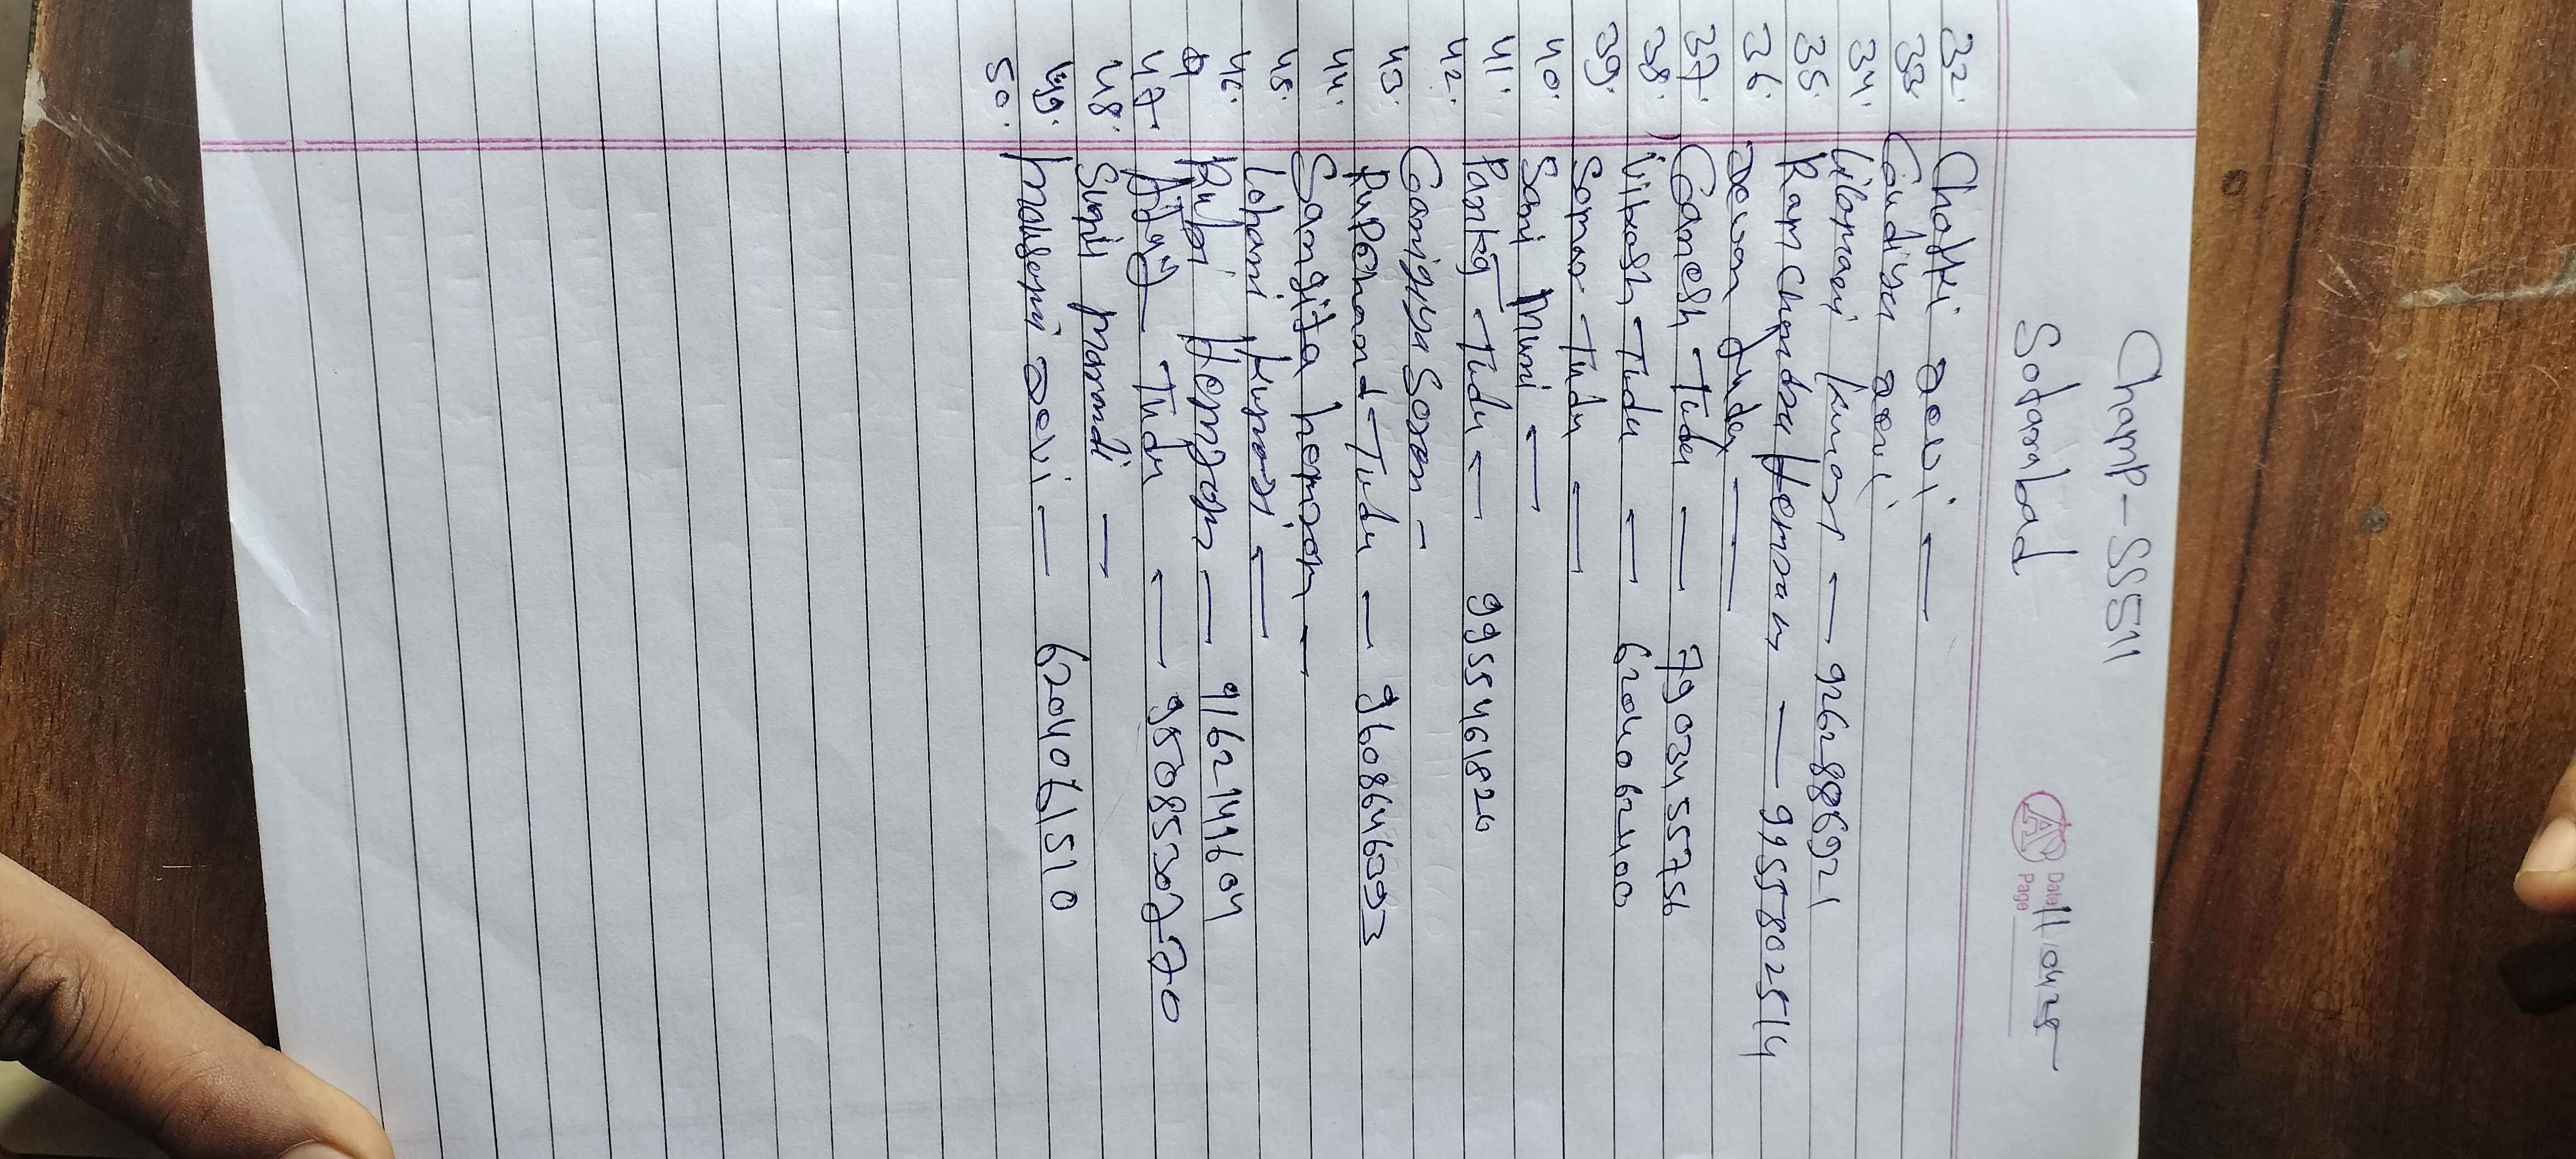 Champ-SS511
Sotarabad
A Date 11/04/25
Page
32. Chotki Devi —
33. Gaudiya Devi
34. Lilomani kumari — 9262886921
35. Ram Chandra Hemram — 9955802514
36. Dewan
37. Ganesh Tudu — 7903455756
38. Vikash Tudu — 6204062400
39. Somar Tudu —
40. Somi Muni —
41. Pankaj Tudu — 9955461820
42. Soren —
43. Rupchand Tudu — 9608646093
44. Sangita hemram —
45. Lohani kumari —
46. Rupi Hemram — 9162141604
47. Ajay Tudu —
48. Sunil marandi —
49. Devi — 6204061510
50.